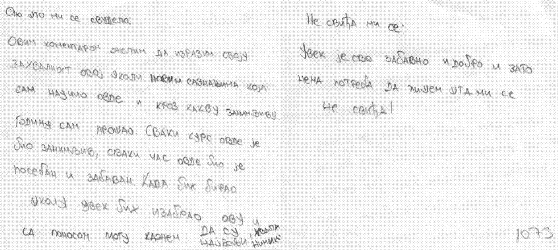 Ово што ми се свидело:
Овим коментаром желим да изразим своју
захвалност овој школи новим сазнањима која
сам научио овде и кроз какву занимљиву
годину сам прошао. Сваки курс овде је
био занимљив, сваки час овде био је
посебан и забаван. Када бих бирао
школу увек бих изабрао ову и
са поносом могу да су
најбољи
Не свиђа ми се:
Увек је све забавно и добро и зато
нема потребе да пишем шта ми се
не свиђа!
1073